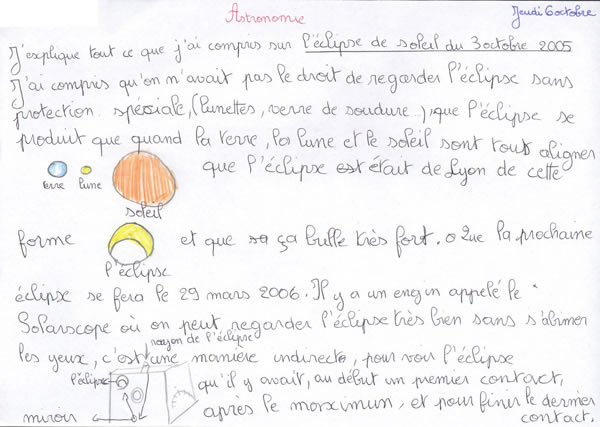 Astronomie
Jeudi 6 octobre
J'explique tout ce que j'ai compris sur l'éclipse de soleil du 3 octobre 2005
J'ai compris qu'on n'avait pas le droit de regarder l'éclipse sans
protection spéciale, (lunettes, verre de soudure..), que l'éclipse se
produit que quand la terre, la lune et le soleil sont tous aligner
que l'éclipse est était de Lyon de cette
terre lune
soleil
forme et que sa ça brille très fort. Que la prochaine
l'éclipse
éclipse se fera le 29 mars 2006. Il y a un engin appelé le
Solarscope où on peut regarder l'éclipse très bien sans s'abîmer
les yeux, c'est une manière indirecte, pour voir l'éclipse
rayon de l'éclipse
l'éclipse
qu'il y avait, au début un premier contact,
miroir
après le maximum, et pour finir le dernier
contact.